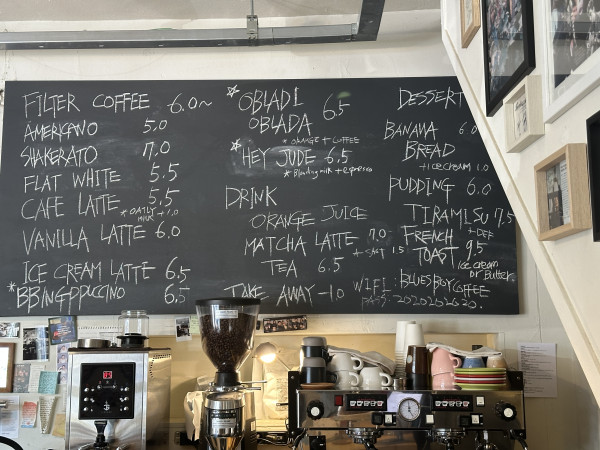 FILTER COFFEE 6.0~
AMERICANO 5.0
SHAKERATO 7.0
FLAT WHITE 5.5
CAFE LATTE 5.5
*OATLY MILK +1.0
VANILLA LATTE 6.0
ICE CREAM LATTE 6.5
*BBINGPPUCCINO 6.5
☆OBLADI
OBLADA 6.5
*ORANGE + COFFEE
☆HEY JUDE 6.5
*Blending milk + espresso
DRINK
ORANGE JUICE
MATCHA LATTE 7.0
+SHOT 1.5
TEA 6.5
TAKE AWAY -1.0
DESSERT
BANANA 6.0
BREAD
+ICE CREAM 1.0
PUDDING 6.0
TIRAMISU 7.5
FRENCH
TOAST 9.5
ice cream
or Butter
WIFI: BLUESBOYCOFFEE
PASS: 2020202020.